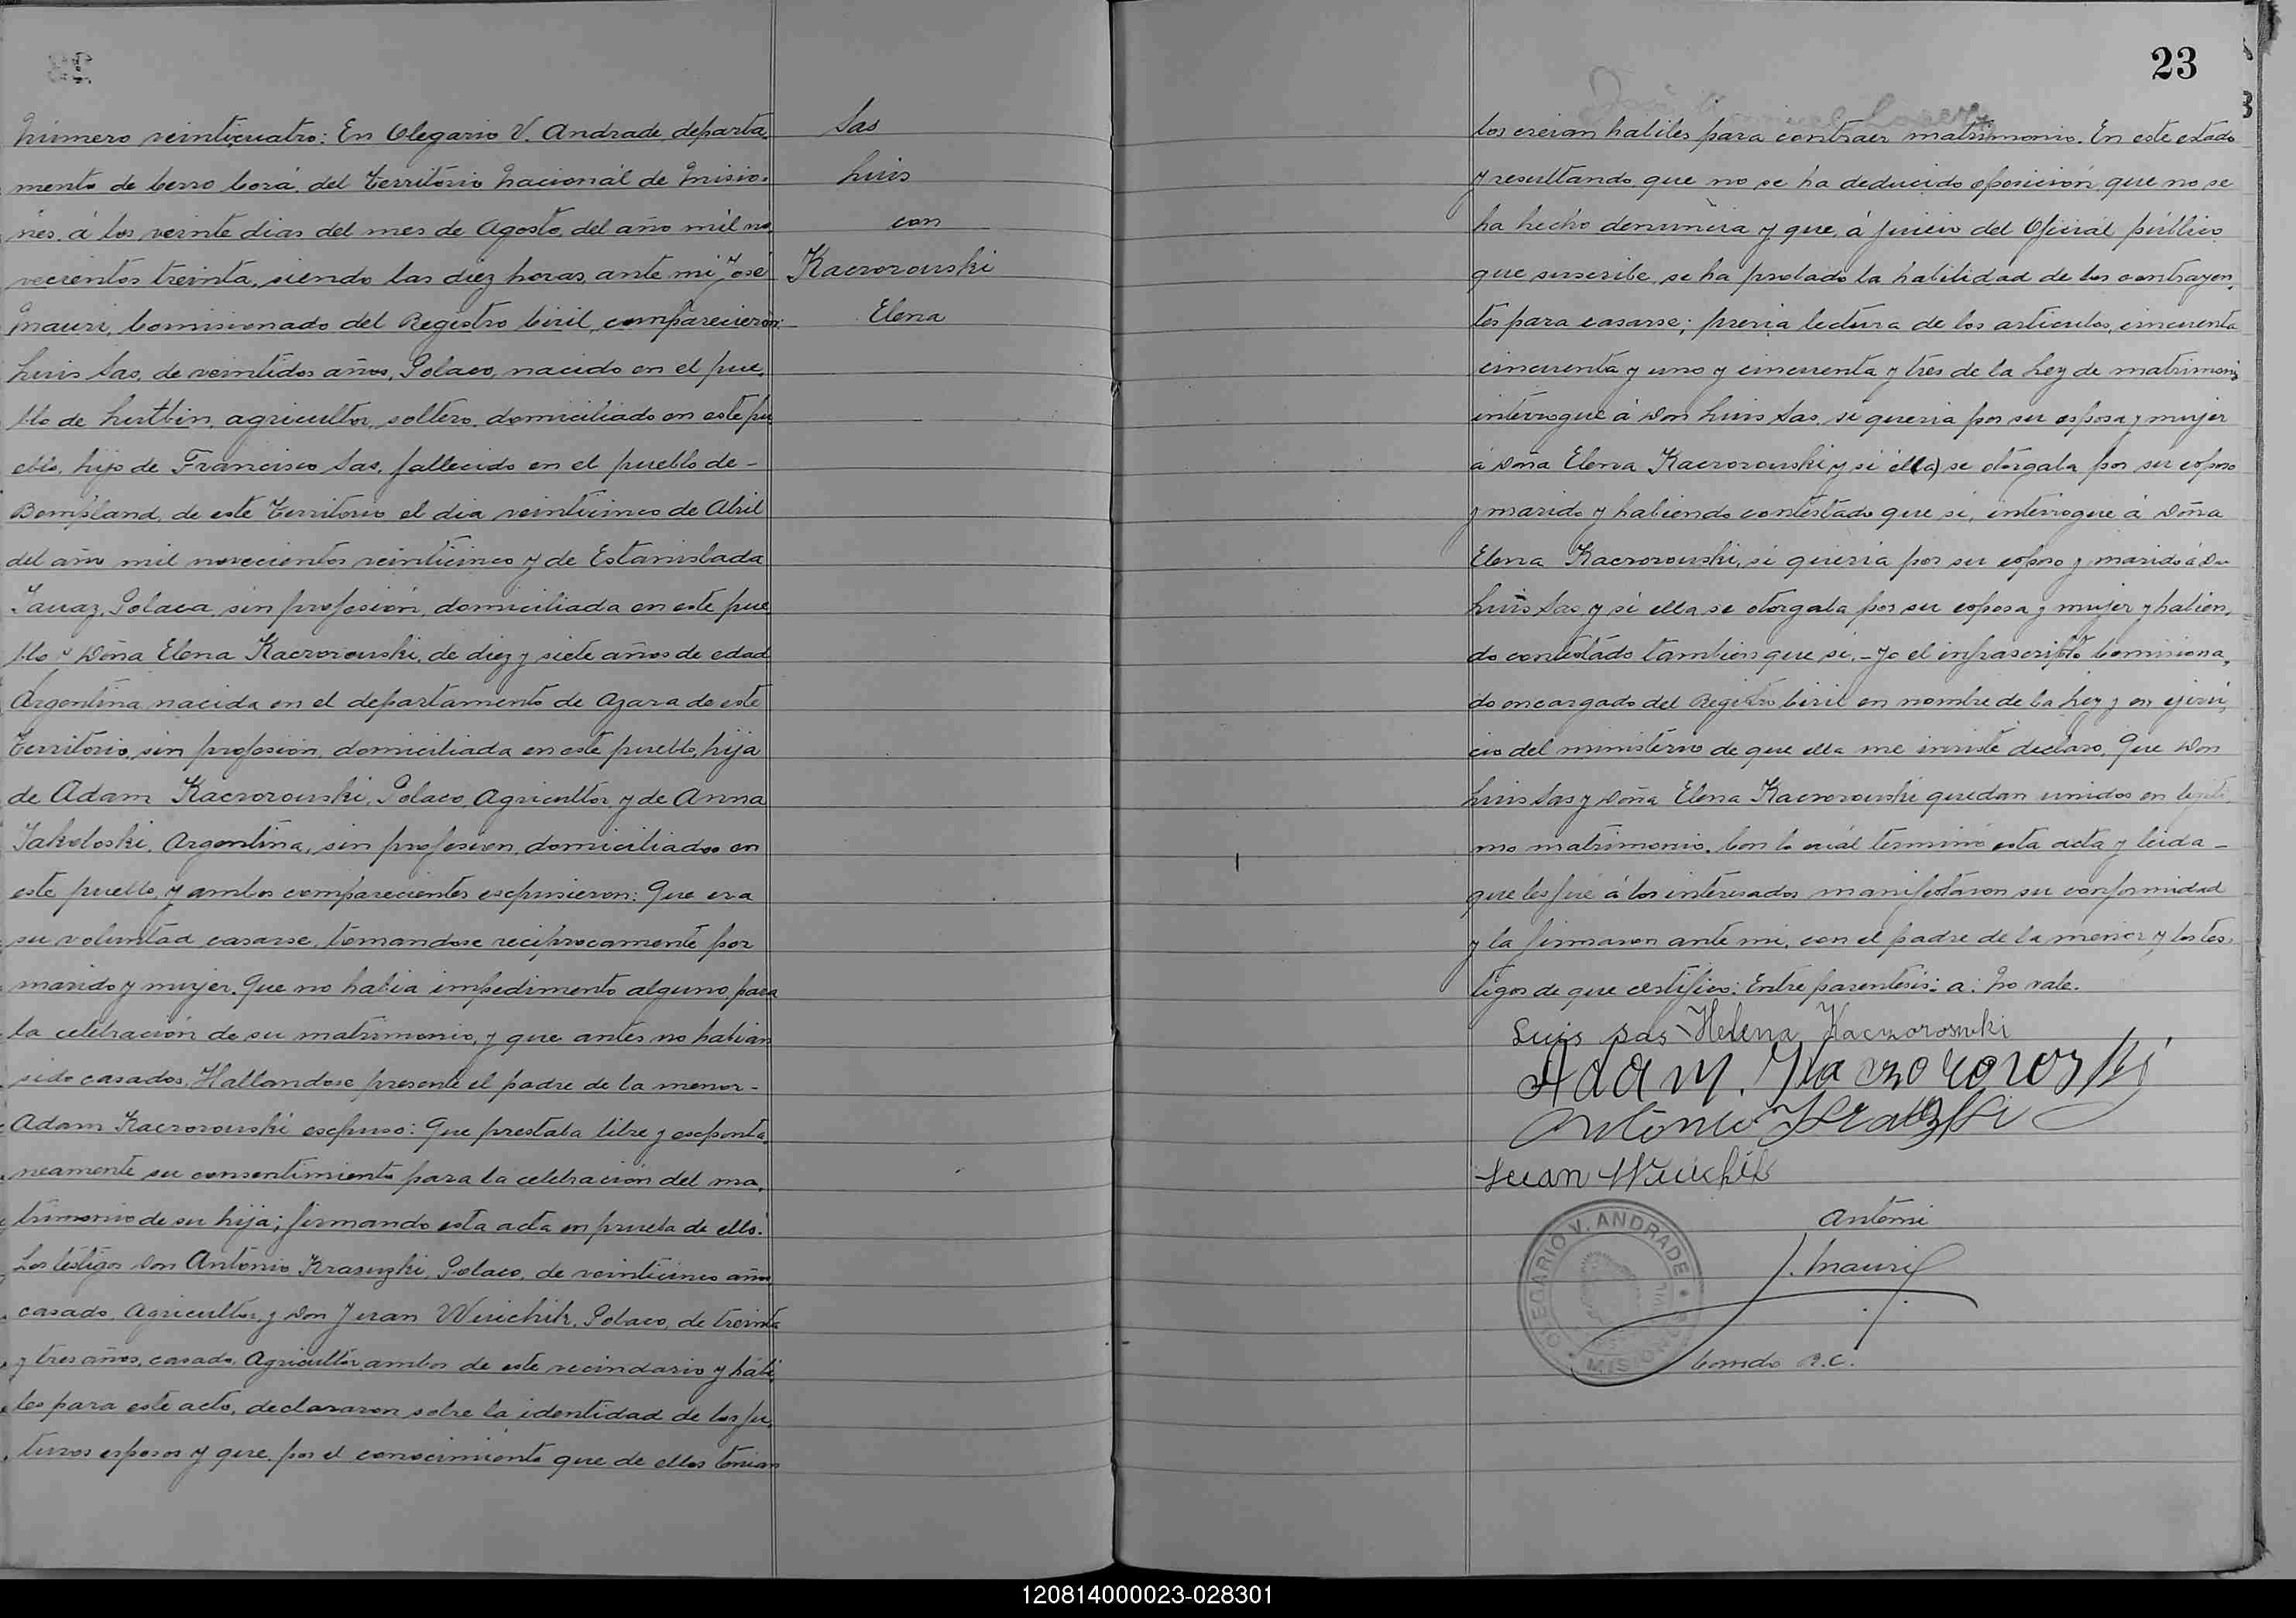 Número veinticuatro: En Olegario V. Andrade, departa-
mento de Cerro Corá, del Territorio Nacional de Misio-
nes, á los veinte dias del mes de Agosto, del año mil no
vecientos treinta, siendo las diez horas, ante mi José
Mauri, Comisionado del Registro Civil, comparecieron:
Luis Sas, de veintidos años, Polaco, nacido en el pue-
blo de Lustbin, agricultor, soltero, domiciliado en este pu
eblo, hijo de Francisco Sas, fallecido en el pueblo de -
Bompland, de este Territorio el dia veinticinco de Abril
del año mil novecientos veinticinco y de Estanislada
Polaca, sin profesión, domiciliada en este pue
blo y Doña Elena Kacrorouski, de diez y siete años de edad
Argentina, nacida en el departamento de Azara de este
Territorio, sin profesión, domiciliada en este pueblo, hija
de Adam Kacrorouski, Polaco, Agricultor, y de Anna
Jakoloski, Argentina, sin profesion, domiciliados en
este pueblo, y ambos comparecientes escpusieron: Que era
su voluntad casarse, tomandose reciprocamente por
marido y mujer. Que no habia impedimento alguno, para
la celebración de su matrimonio, y que antes no habian
sido casados. Hallandose presente el padre de la menor -
Adam Kacrorouski escpuso: Que prestaba libre y esceponta-
neamente su consentimiento para la celebración del ma-
trimonio de su hija; firmando esta acta en prueba de ello.
Los testigos Don Antonio Krasuzki, Polaco, de veinticinco años
casado, Agricultor, y Don Juan Wuichik, Polaco, de treinta
y tres años, casado, Agricultor, ambos de este vecindario y hábi-
les para este acto, declararon sobre la identidad de los fu-
turos esposos y que, por el conocimiento que de ellos tenian
Sas
Luis
con
Kacrorouski
Elena
23
los creian habiles para contraer matrimonio. En este estado
y resultando, que no se ha deducido oposición, que no se
ha hecho denuncia y que, á juicio del Oficial público
que suscribe, se ha probado la habilidad de los contrayen-
tes para casarse; previa lectura de los articulos, cincuenta
cincuenta y uno y cincuenta y tres de la Ley de matrimonio
interrogué á Don Luis Sas, si queria por su esposa y mujer
á Doña Elena Kacrorouski y si éll(a) se otorgaba por su esposo
y marido y habiendo contestado que si, interrogué á Doña
Elena Kacrorouski, si queria por su esposo y marido á Dn
Luis Sas, y si ella se otorgaba por su esposa y mujer y habien-
do contestado tambien que si.- Yo el infrascripto Comisiona-
do encargado del Registro Civil en nombre de la Ley y en ejerci-
cio del ministerio de que ella me inviste declaro, Que Don
Luis Sas y Doña Elena Kacrorouski quedan unidos en legiti-
mo matrimonio. Con lo cuál terminó esta acta y leida -
que les fué á los interesados manifestaron su conformidad
y la firmaron ante mi, con el padre de la menor y los tes-
tigos de que certifico: Entre parentesis: a: No vale.
Luis Sas Helena Kaczorowski
Adam. Kaczorowski
Antonio Krasuzki
Juan Wuichik
Antemi
J. Mauri
Comdo R.C.
OLEGARIO V. ANDRADE
MISIONES
120814000023-028301